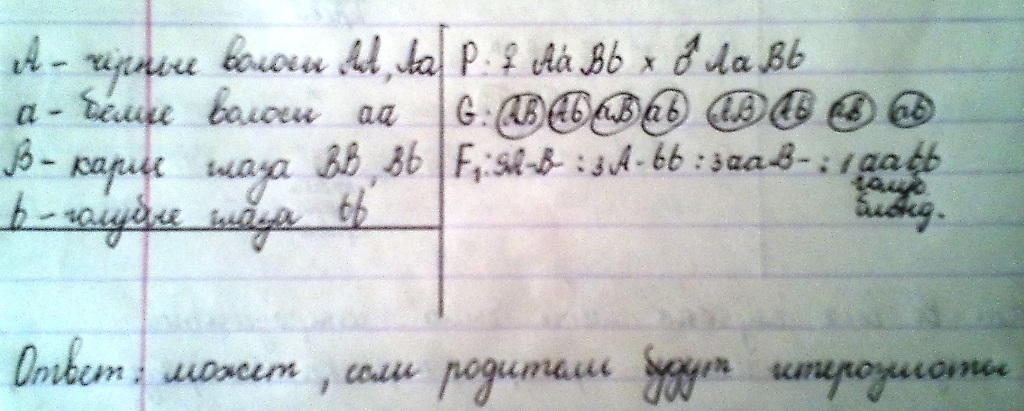 А - чёрные волосы АА, Аа
а - белые волосы аа
В - карие глаза ВВ, Вb
b - голубые глаза bb
P: ♀ AaBb × ♂ AaBb
G: AB Ab aB ab AB Ab aB ab
F₁: 9A-B- : 3A-bb : 3aaB- : 1aabb
голуб.
блонд.
Ответ: может, если родители будут гетерозиготы